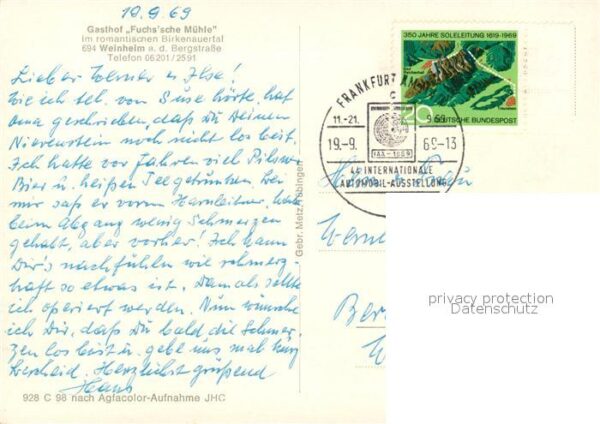 19.9.69
Gasthof „Fuchs'sche Mühle"
im romantischen Birkenauertal
694 Weinheim a. d. Bergstraße
Telefon 06201/2591
Lieber Werner u. Ilse!
Wie ich tel. von Suse hörte, hat
Oma geschrieben, daß Du Deinen
Nierenstein noch nicht los bist.
Ich hatte vor Jahren viel Pilsner
Bier u. heißen Tee getrunken. Bei
mir saß er vorm Harnleiter,
beim Abgang wenig Schmerzen
gehabt, aber vorher! Ich kann
Dir's nachfühlen wie schmerz-
haft so etwas ist. Damals sollte
ich operiert werden. Nun wünsche
ich Dir, daß Du bald die Schmer-
zen los bist u. gebt uns mal kurz
Bescheid. Herzlichst grüßend
Hans
928 C 98 nach Agfacolor-Aufnahme JHC
Gebr. Metz, Tübingen
350 JAHRE SOLELEITUNG 1619-1969
20
DEUTSCHE BUNDESPOST
FRANKFURT AM
11.-21. 9.69
19.-9. 69-13
IAA-1969
44 INTERNATIONALE
AUTOMOBIL-AUSSTELLUNG
privacy protection
Datenschutz